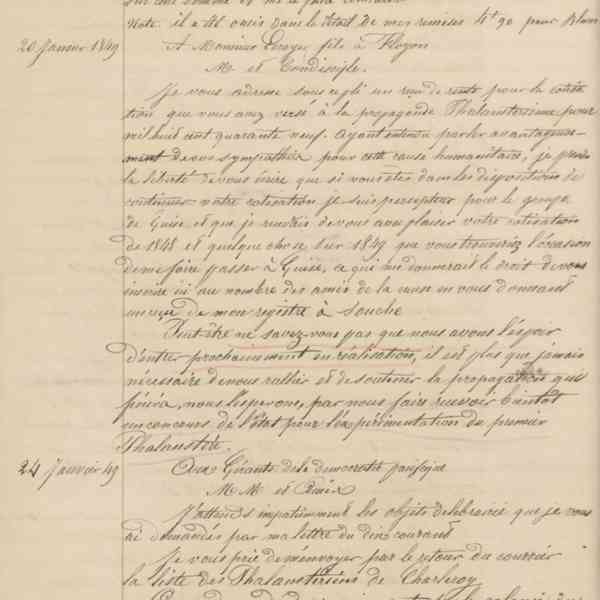 Note. il a été omis dans le détail de mes remises 4f 90 pour
20 Janvier 1849 A Monsieur Leroyer fils à Floyon
M. et Condisciple.
Je vous adresse sous ce pli un reçu de rente pour la cotisa
tion que vous avez versé à la propagande Phalanstérienne pour
mil huit cent quarante neuf. Ayant entendu parler avantageuse-
ment de vos sympathies pour cette cause humanitaire, je prends
la liberté de vous écrire que si vous êtes dans les dispositions de
continuer votre cotisation je suis percepteur pour le groupe
de Guise et que je recevrais de vous avec plaisir votre cotisation
de 1848 et quelque chose sur 1849 que vous trouveriez l'occasion
de me faire passer à Guise, ce qui me donnerait le droit de vous
inscrire ici au nombre des amis de la cause en vous donnant
un reçu de mon registre à souche
Peut-être ne savez-vous pas que nous avons l'espoir
d'entrer prochainement en réalisation, il est plus que jamais
nécessaire de nous rallier et de soutenir la propagation qui
finira, nous l'espérons, par nous faire recevoir bientôt
un concours de l'état pour l'expérimentation du premier
Phalanstère.
24 Janvier 49 Aux Gérants de la démocratie pacifique
M M et Amis
J'attends impatiemment les objets de librairie que je vous
ai demandés par ma lettre du dix courant
Je vous prie de m'envoyer par le retour du courrier
la liste des Phalanstériens de Charleroy